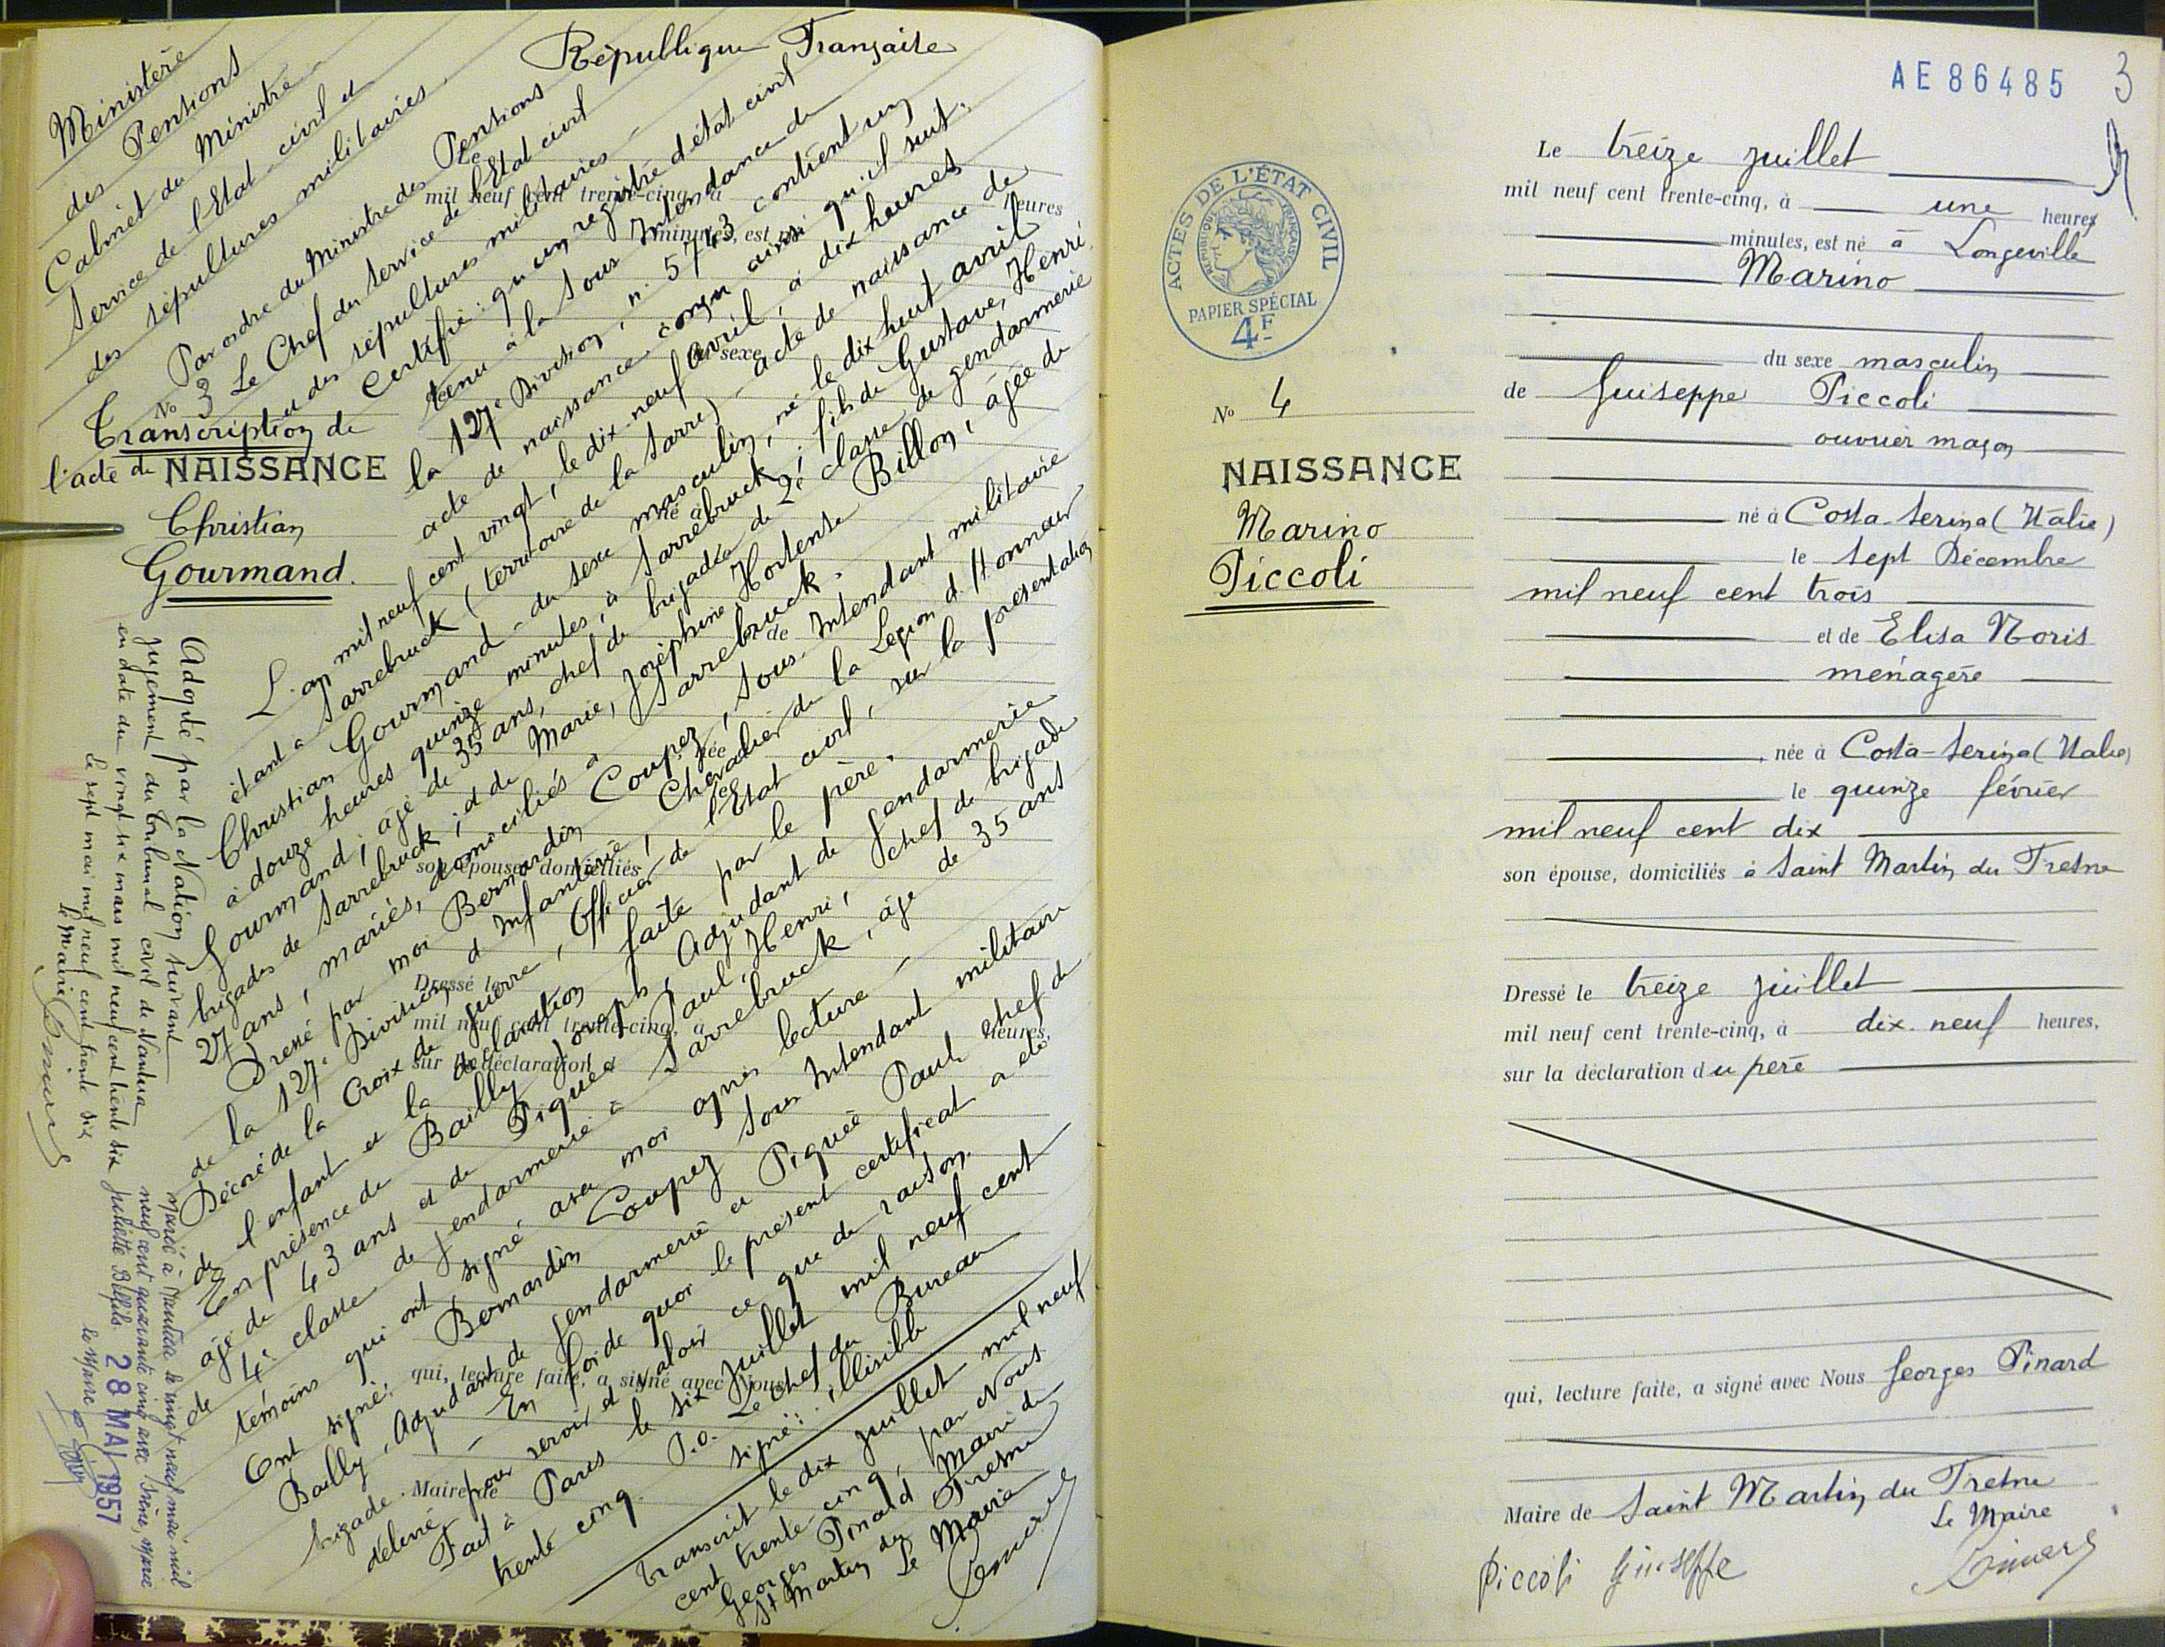 République Française
Ministère
des Pensions
Cabinet du Ministre
Service de l'Etat-civil et
des sépultures militaires.
Par ordre du Ministre des Pensions
Le Chef du Service de l'Etat civil
et des sépultures militaires -
Certifie: qu'un registre d'état civil
tenu à la Sous Intendance de
la 127e Division, n. 5743 contient un
acte de naissance conçu ainsi qu'il suit.
No 3
Transcription de
l'acte de NAISSANCE
Christian
Gourmand.
L'an mil neuf cent vingt, le dix-neuf avril, à dix heures
étant à Sarrebruck (territoire de la Sarre) - acte de naissance de
Christian Gourmand - du sexe masculin, né le dix huit avril
à douze heures quinze minutes, à Sarrebruck; fils de Gustave, Henri
Gourmand, âgé de 35 ans, chef de brigade de 2e classe de gendarmerie
brigades de Sarrebruck; et de Marie, Joséphine Hortense Billon, âgée de
27 ans, mariés, domiciliés à Sarrebruck.
Dressé par moi Bernardin Coupez, Sous-Intendant militaire
de la 127e Division d'Infanterie, Chevalier de la Légion d'Honneur
Décoré de la Croix de guerre, Officier de l'Etat civil, sur la présentation
de l'enfant et la déclaration faite par le père.
En présence de Bailly Joseph, Adjudant de gendarmerie
âgé de 43 ans et de Piquée Paul, Henri, chef de brigade
de 4e classe de gendarmerie à Sarrebruck, âgé de 35 ans
témoins qui ont signé avec moi après lecture -
Ont signé: Bernardin Coupez Sous Intendant militaire
Bailly, Adjudant de gendarmerie et Piquée Paul chef de
brigade. - En foi de quoi le présent certificat a été
délivré pour servir et valoir ce que de raison.
Fait à Paris le six juillet mil neuf cent
trente cinq. P.O. Le Chef du Bureau
signé: illisible
Transcrit le dix juillet mil neuf
cent trente cinq, par Nous
Georges Pinard Maire de
St Martin du Fresne
Le Maire
mil neuf cent trente-cinq, à heures
minutes, est né
du sexe
né à
et de
née
le
son épouse, domiciliés
Dressé le
mil neuf cent trente-cinq, à heures,
sur la déclaration
qui, lecture faite, a signé avec Nous
Maire de
Adopté par la Nation suivant
jugement du Tribunal civil de Nantua
en date du vingt six mars mil neuf cent trente six
le sept mai mil neuf cent trente six
le Maire
Marié à Nantua le vingt neuf mai mil
neuf cent quarante cinq avec Irène, Marie
Juliette
le Maire
28 MAI 1957
AE 86485
3
ACTES DE L'ÉTAT CIVIL
RÉPUBLIQUE FRANÇAISE
PAPIER SPÉCIAL
4F
No 4
NAISSANCE
Marino
Piccoli
Le treize juillet
mil neuf cent trente-cinq, à une heures
minutes, est né à Longeville
Marino
du sexe masculin
de Guiseppe Piccoli
ouvrier maçon
né à Costa-Serina (Italie)
le sept Décembre
mil neuf cent trois
et de Elisa Noris
ménagère
, née à Costa-Serina (Italie)
le quinze février
mil neuf cent dix
son épouse, domiciliés à Saint Martin du Fresne
Dressé le treize juillet
mil neuf cent trente-cinq, à dix-neuf heures,
sur la déclaration du père
qui, lecture faite, a signé avec Nous Georges Pinard
Maire de Saint Martin du Fresne
Le Maire
Piccoli Giuseppe